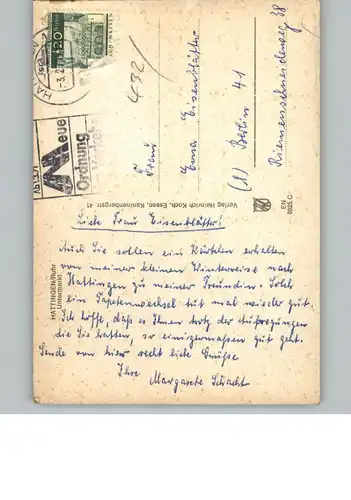 Liebe Frau Eisenblätter!
Auch Sie sollen ein Kärtchen erhalten
von meiner kleinen Winterreise nach
Hattingen zu meiner Freundin. Solch
ein Tapetenwechsel tut mal wieder gut.
Ich hoffe, daß es Ihnen trotz der Aufregungen
die Sie hatten, so einigermaßen gut geht.
Sende von hier recht liebe Grüße
Ihre
Margarete Schacht
HATTINGEN/Ruhr
Untermarkt
Verlag Heinrich Koch, Essen, Kaninenbergstr. 41
EN
Frau
Erna Eisenblätter
(1) Berlin 41
Riemenschneiderweg 38
432/
20
Neue
Ordnung